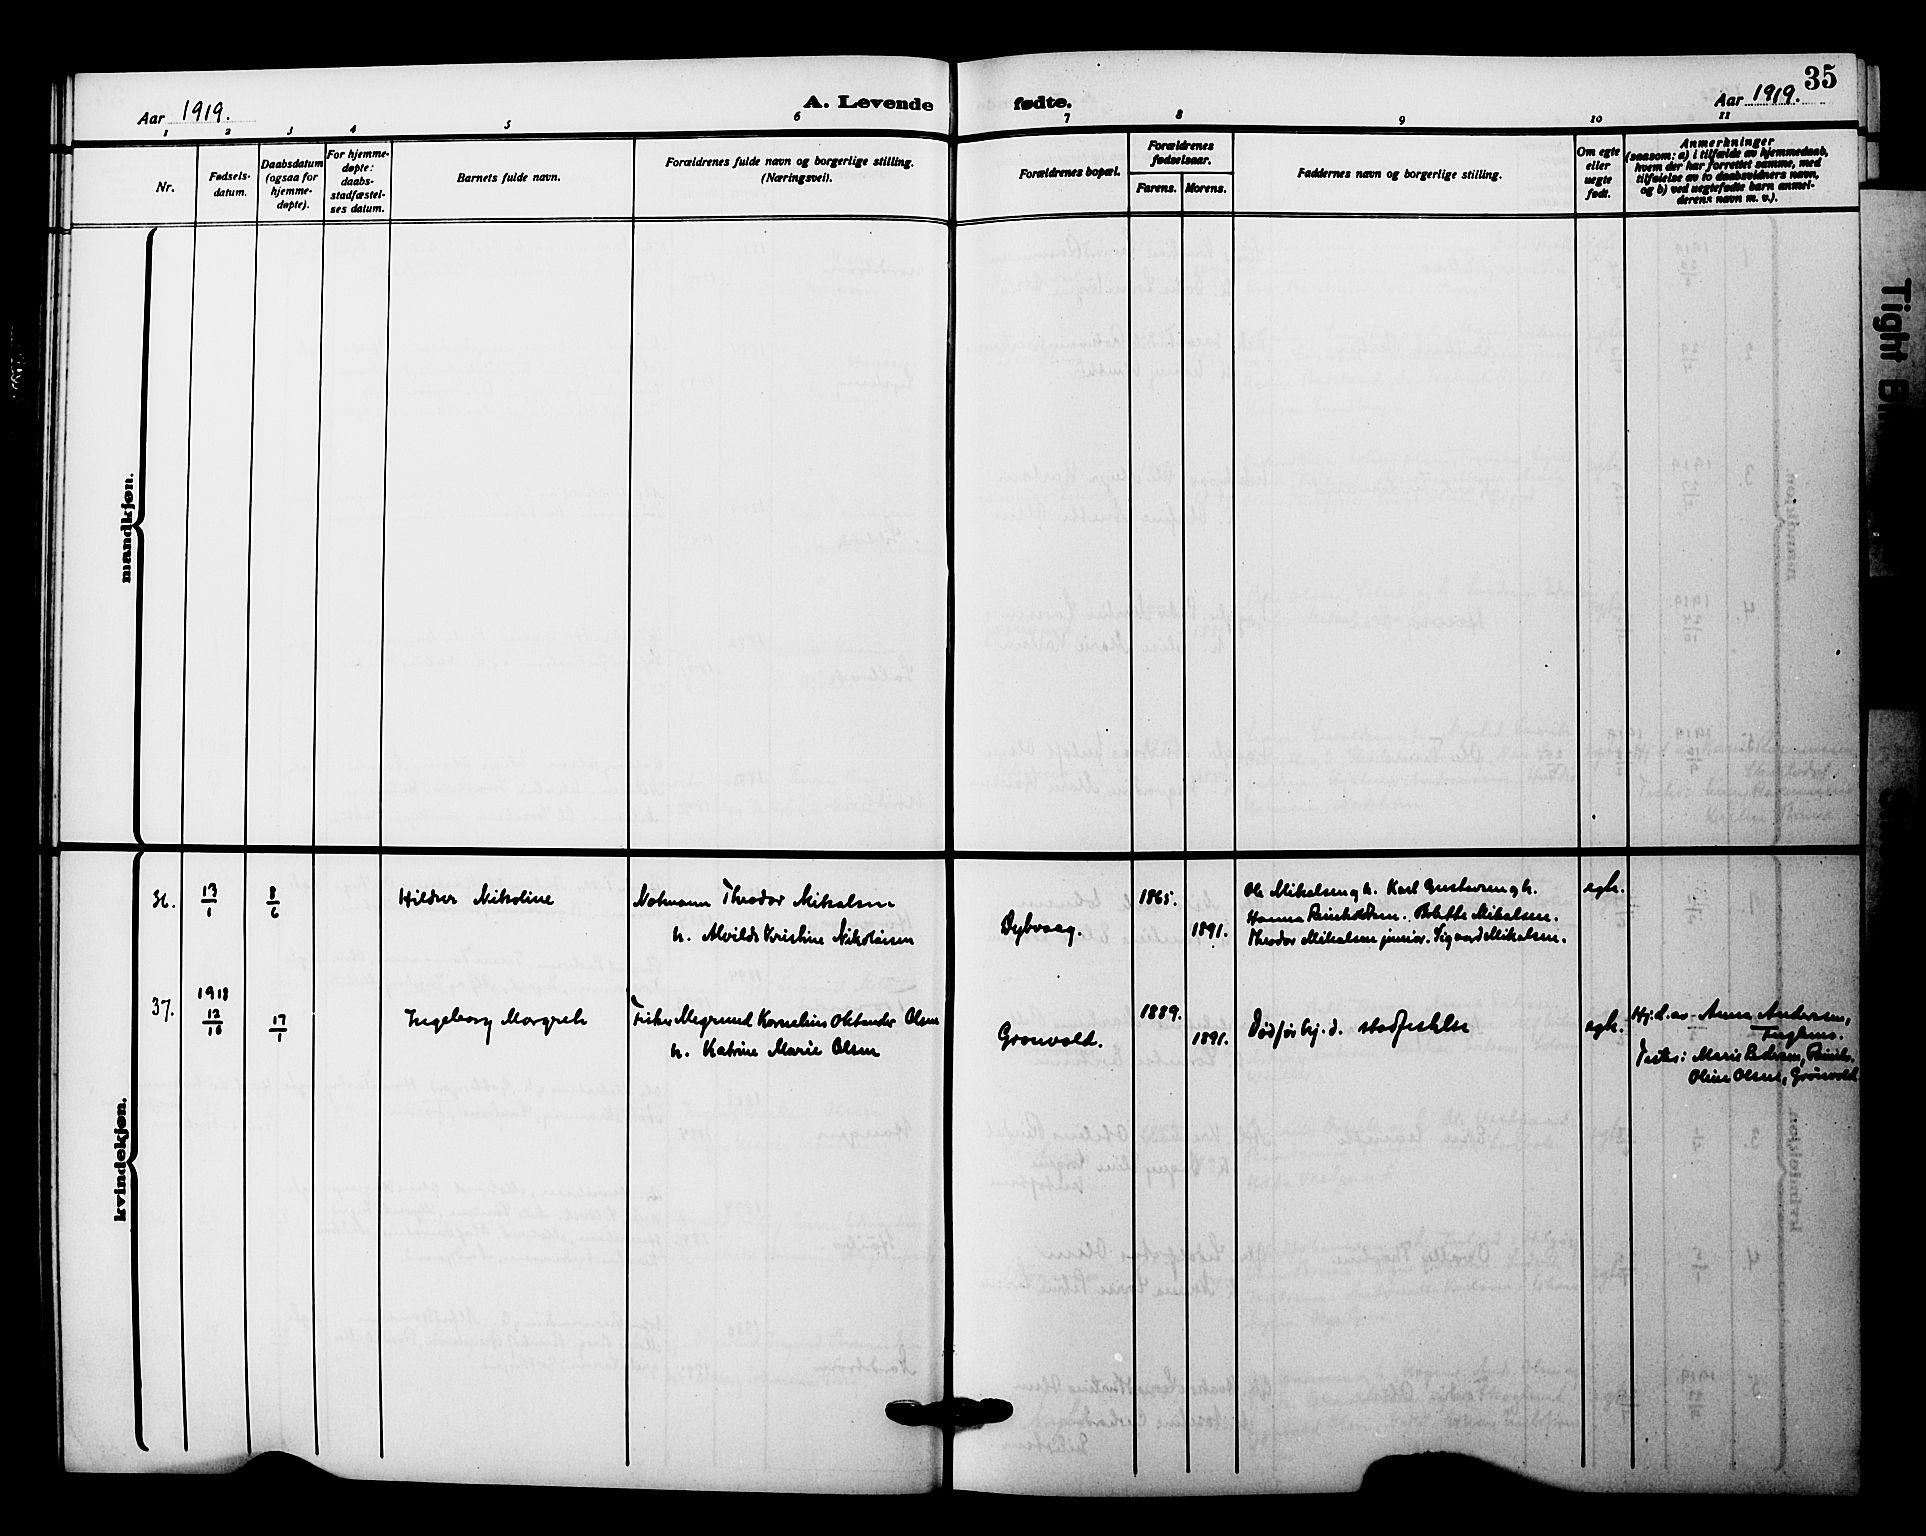 35
Aar 1919.
A. Levende fødte.
Aar 1919.
1 2 3 4 5 6 7 8 9 10 11
Nr.
Fødsels-
datum.
Daabsdatum
(ogsaa for
hjemme-
døpte).
For hjemme-
døpte:
daabs-
stadfæstel-
ses datum.
Barnets fulde navn.
Forældrenes fulde navn og borgerlige stilling.
(Næringsvei).
Forældrenes bopæl.
Forældrenes
fødselsaar.
Farens. Morens.
Faddernes navn og borgerlige stilling.
Om egte
eller
uegte
født.
Anmerkninger
(saasom: a) i tilfælde av hjemmedaab,
hvem der har forrettet samme, med
tilføielse av to daabsvidners navn,
og b) ved uegtefødte barn anmel-
derens navn m. v.).
mandkjøn.
kvindekjøn.
36.
13/1
8/6
Hildur Nikoline
Notmann Theodor Mikalsen
h. Alvilde Kristine Nikolaisen
Dybvaag.
1865.
1891.
Ole Mikalsen og h. Karl Gustavsen og h.
Hanna Reinholdtsen. Bolette Mikalsen.
Theodor Mikalsen junior. Sigurd Mikalsen.
egte.
37.
1918
12/10
17/1
Ingeborg Margreth
Fisker Kornelius Olsen
h. Katrine Marie Olsen
Grønvold.
1889.
1891.
Død før hj.d. stadfestelse
egte.
Hj.d. av Anna Andersen,
Fuglenes.
Testes: Marie Pedersen,
Oline Olsen, Grønvold
Tight